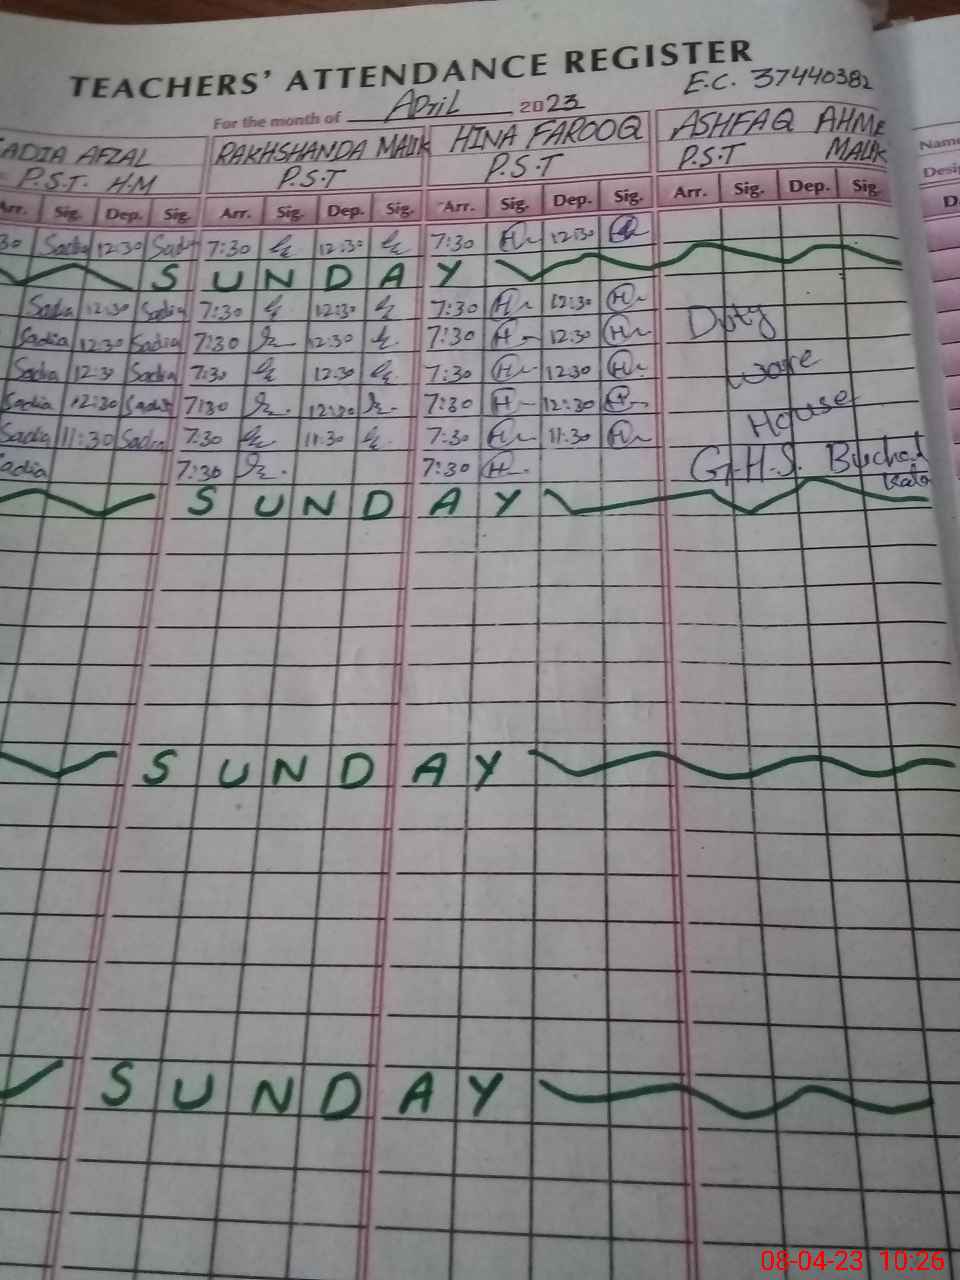 TEACHERS' ATTENDANCE REGISTER
E.C. 37440382
For the month of APriL 2023
ADIA AFZAL RAKHSHANDA MALIK HINA FAROOQ ASHFAQ AHME
P.S.T. H.M P.S.T P.S.T P.S.T MALIK
Name
Desi
Arr. Sig. Dep. Sig. Arr. Sig. Dep. Sig. Arr. Sig. Dep. Sig. Arr. Sig. Dep. Sig.
D
30 Sadia 12:30 Sadi 7:30 12:30 7:30 12:30
SUNDAY
Sadia 12:30 Sadia 7:30 12:30 7:30 12:30
Sadia 12:30 Sadia 7:30 12:30 7:30 12:30 Duty
Sadia 12:30 Sadia 7:30 12:30 7:30 12:30 ware
Sadia 12:30 Sadia 7:30 12:30 7:30 12:30 House
Sadia 11:30 Sadia 7:30 11:30 7:30 11:30
adia 7:30 7:30 G.H.S.
SUNDAY
SUNDAY
SUNDAY
08-04-23 10:26